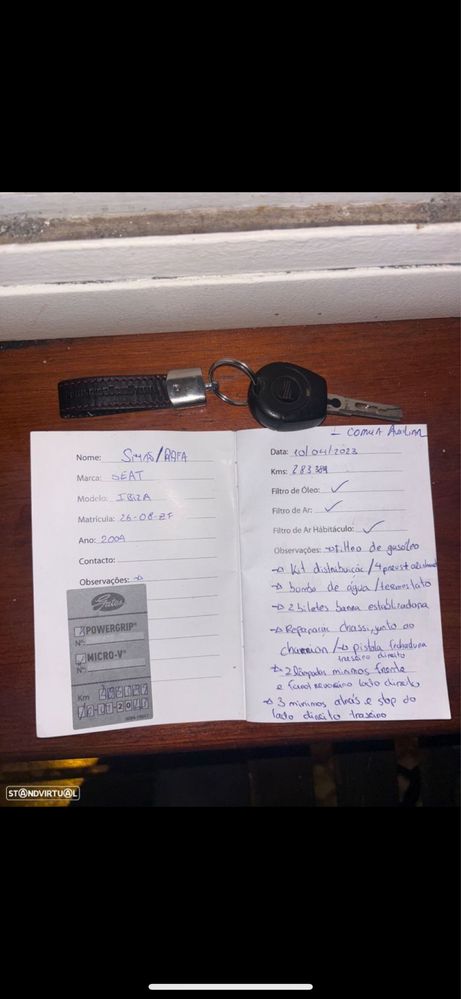 Nome: Simão/RAFA
Marca: SEAT
Modelo: IBIZA
Matrícula: 26-08-ZF
Ano: 2004
Contacto:
Observações:
Gates
POWERGRIP®
Nº
MICRO-V®
Nº
Km
- COMUTA
Data: 10/04/2023
Kms: 283 389
Filtro de Óleo: ✓
Filtro de Ar: ✓
Filtro de Ar Habitáculo: ✓
Observações: → filtro de gasóleo
→ Kit distribuição /
→ bomba de água/termostato
→ 2 biletes barra establizadora
→ Reparação chassi, junto ao
/→ pistola fechadura
traseiro direito
→ 2 lâmpadas minimos frente
e farol nevoeiro lado direito
→ 3 minimos atrás e stop do
lado direito traseiro
STANDVIRTUAL